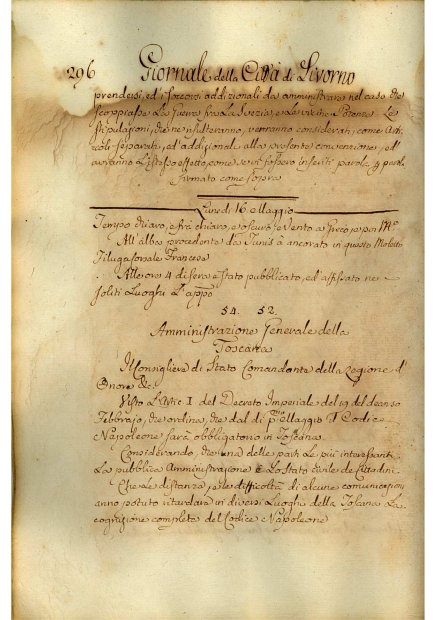 296 Giornale della Città di Livorno
prendersi, ed i soccorsi addizionali da amministrare nel caso che
scoppiasse la guerra fra la Svezia, e le vicine Potenze. Le
stipulazioni, che ne risulteranno, verranno considerati, come Arti-
coli separati, ed addizionali alla presente convenzione, ed
avranno l'istesso effetto, come se vi fossero inseriti parola p parola
firmato come sopra
Lunedì 16 Maggio
Tempo chiaro, e frà chiaro, e oscuro e Vento a Greco, e poi
All'alba procedente da Tunis à ancorato in questo Moletto
Filuga Francese
Alle ore 4 di sera è stato pubblicato, ed affissato ne
soliti Luoghi L'appo
54. 52.
Amministrazione Generale della
Toscana
Il Consigliere di Stato Comandante della Legione d'
Onore &c
Visto L'Artic I del Decreto Imperiale del 19 del decorso
Febbrajo, che ordina, che dal dì pmo Maggio il Codice
Napoleone sarà obbligatorio in Toscana
Considerando, che una delle parti le più interessanti
La pubblica Amministrazione è Lo stato civile de Cittadini
Che le distanze, e le difficoltà di alcune comunicazioni
anno potuto ritardare in diversi Luoghi della Toscana La
cognizione completa del Codice Napoleone